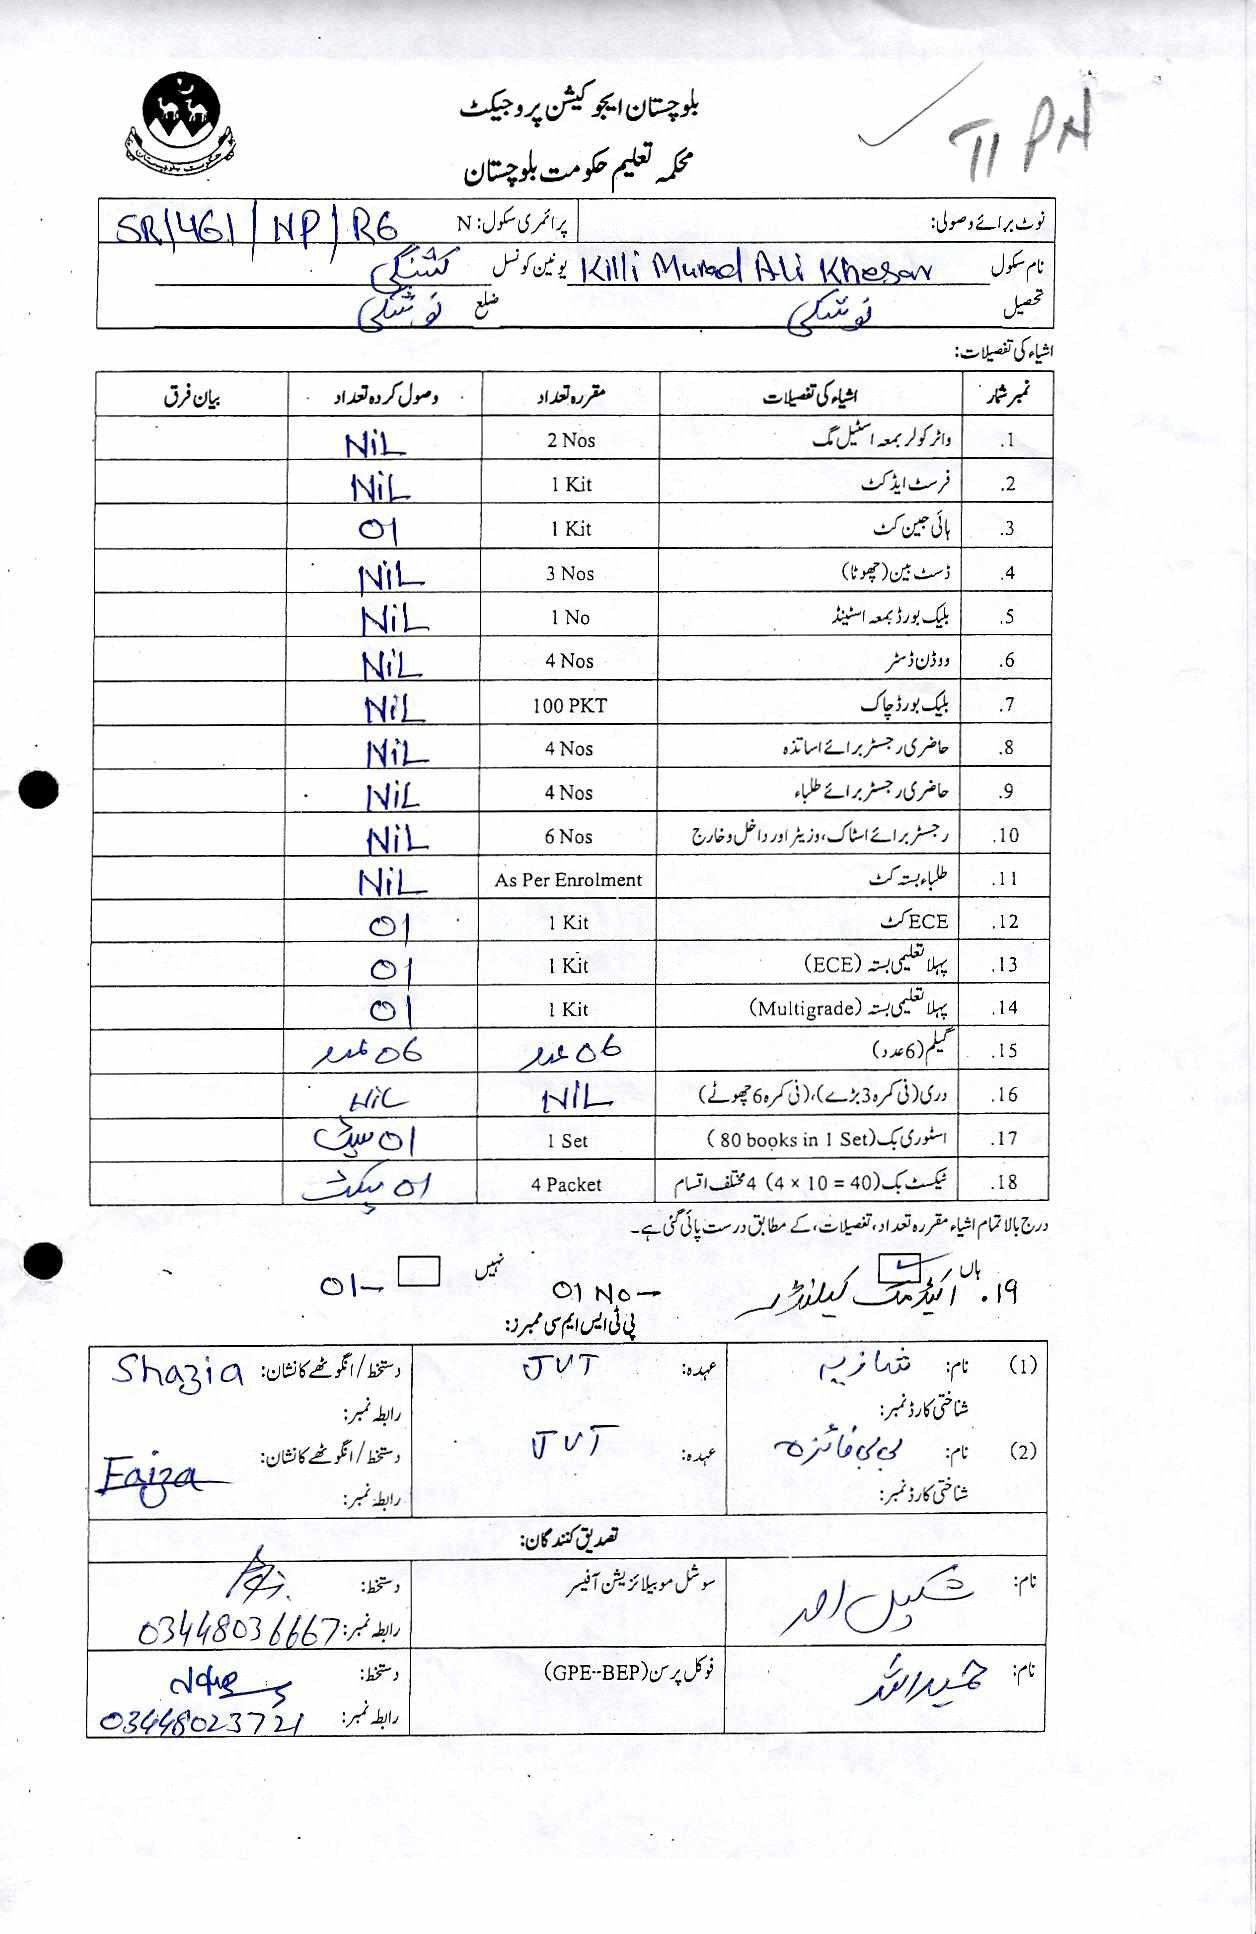 TI PN
بلوچستان ایجوکیشن پروجیکٹ
محکمہ تعلیم حکومت بلوچستان
نوٹ برائے وصولی: پرائمری سکول: N SR/461/NP/R6
نام سکول Killi Murad Ali Khesar یونین کونسل کشنگی
تحصیل نوشکی ضلع نوشکی
اشیاء کی تفصیلات:
نمبر شمار اشیاء کی تفصیلات مقررہ تعداد وصول کردہ تعداد بیان فرق
1. واٹر کولر بمعہ اسٹیل مگ 2 Nos NiL
2. فرسٹ ایڈ کٹ 1 Kit NiL
3. ہائی جین کٹ 1 Kit 01
4. ڈسٹ بین (چھوٹا) 3 Nos NiL
5. بلیک بورڈ بمعہ اسٹینڈ 1 No NiL
6. ووڈن ڈسٹر 4 Nos NiL
7. بلیک بورڈ چاک 100 PKT NiL
8. حاضری رجسٹر برائے اساتذہ 4 Nos NiL
9. حاضری رجسٹر برائے طلباء 4 Nos NiL
10. رجسٹر برائے اسٹاک، وزیٹر اور داخل و خارج 6 Nos NiL
11. طلباء بستہ کٹ As Per Enrolment NiL
12. ECE کٹ 1 Kit 01
13. پہلا تعلیمی بستہ (ECE) 1 Kit 01
14. پہلا تعلیمی بستہ (Multigrade) 1 Kit 01
15. گیلم (6 عدد) 06 عدد 06 عدد
16. دری (فی کمرہ 3 بڑے)، (فی کمرہ 6 چھوٹے) NIL NiL
17. اسٹوری بک (80 books in 1 Set) 1 Set 01 سیٹ
18. ٹیکسٹ بک (4 × 10 = 40) 4 مختلف اقسام 4 Packet 01 پیکٹ
درج بالا تمام اشیاء مقررہ تعداد، تفصیلات، کے مطابق درست پائی گئی ہے۔
ہاں نہیں
۱۹. اکیڈمک کیلنڈر 01 No 01
پی ٹی ایس ایم سی ممبرز:
(1) نام: شازیہ عہدہ: JVT دستخط/انگوٹھے کا نشان: Shazia
شناختی کارڈ نمبر: رابطہ نمبر:
(2) نام: بی بی فائزہ عہدہ: JVT دستخط/انگوٹھے کا نشان: Faiza
شناختی کارڈ نمبر: رابطہ نمبر:
تصدیق کنندگان:
نام: شکیل احمد سوشل موبیلائزیشن آفیسر دستخط:
رابطہ نمبر: 03448036667
نام: حمید اللہ فوکل پرسن (GPE--BEP) دستخط:
رابطہ نمبر: 03448023721